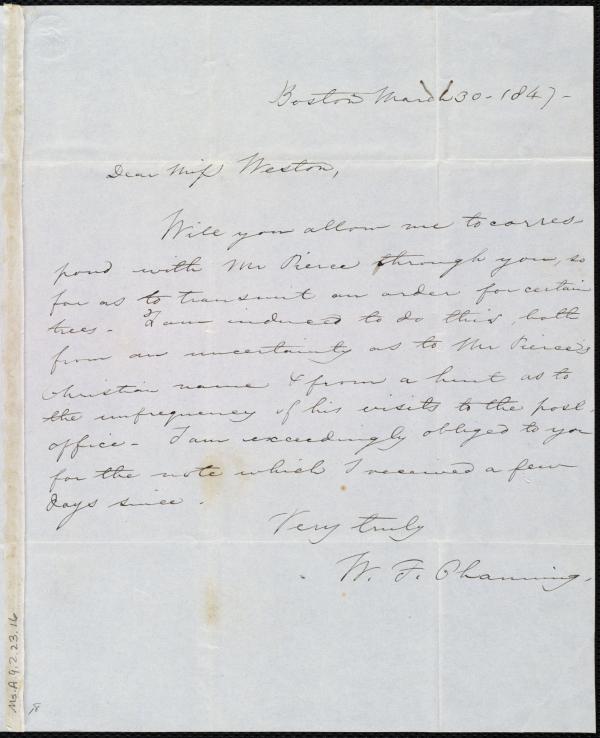 Boston March 30 - 1847 -
Dear Miss Weston,
Will you allow me to corres-
pond with Mr Pierce through you, so
far as to transmit an order for certain
trees - I am induced to do this, both
from an uncertainty as to Mr Pierce's
Christian name & from a hint as to
the unfrequency of his visits to the post-
office - I am exceedingly obliged to you
for the note which I received a few
days since.
Very truly
W. F. Channing.
Ms. A. 9. 2. 23. 16